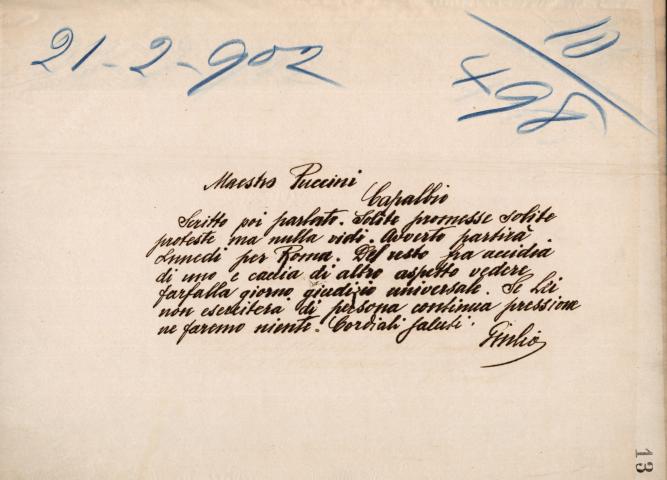 21-2-902
10/498
Maestro Puccini
Capalbio
Scritto poi parlato. Solite promesse solite
proteste ma nulla vidi. Avverto partirà
Lunedì per Roma. Del resto fra accidia
di uno e caccia di altro aspetto vedere
farfalla giorno giudizio universale. Se Lei
non eserciterà di persona continua pressione
ne faremo niente. Cordiali saluti.
Giulio
13